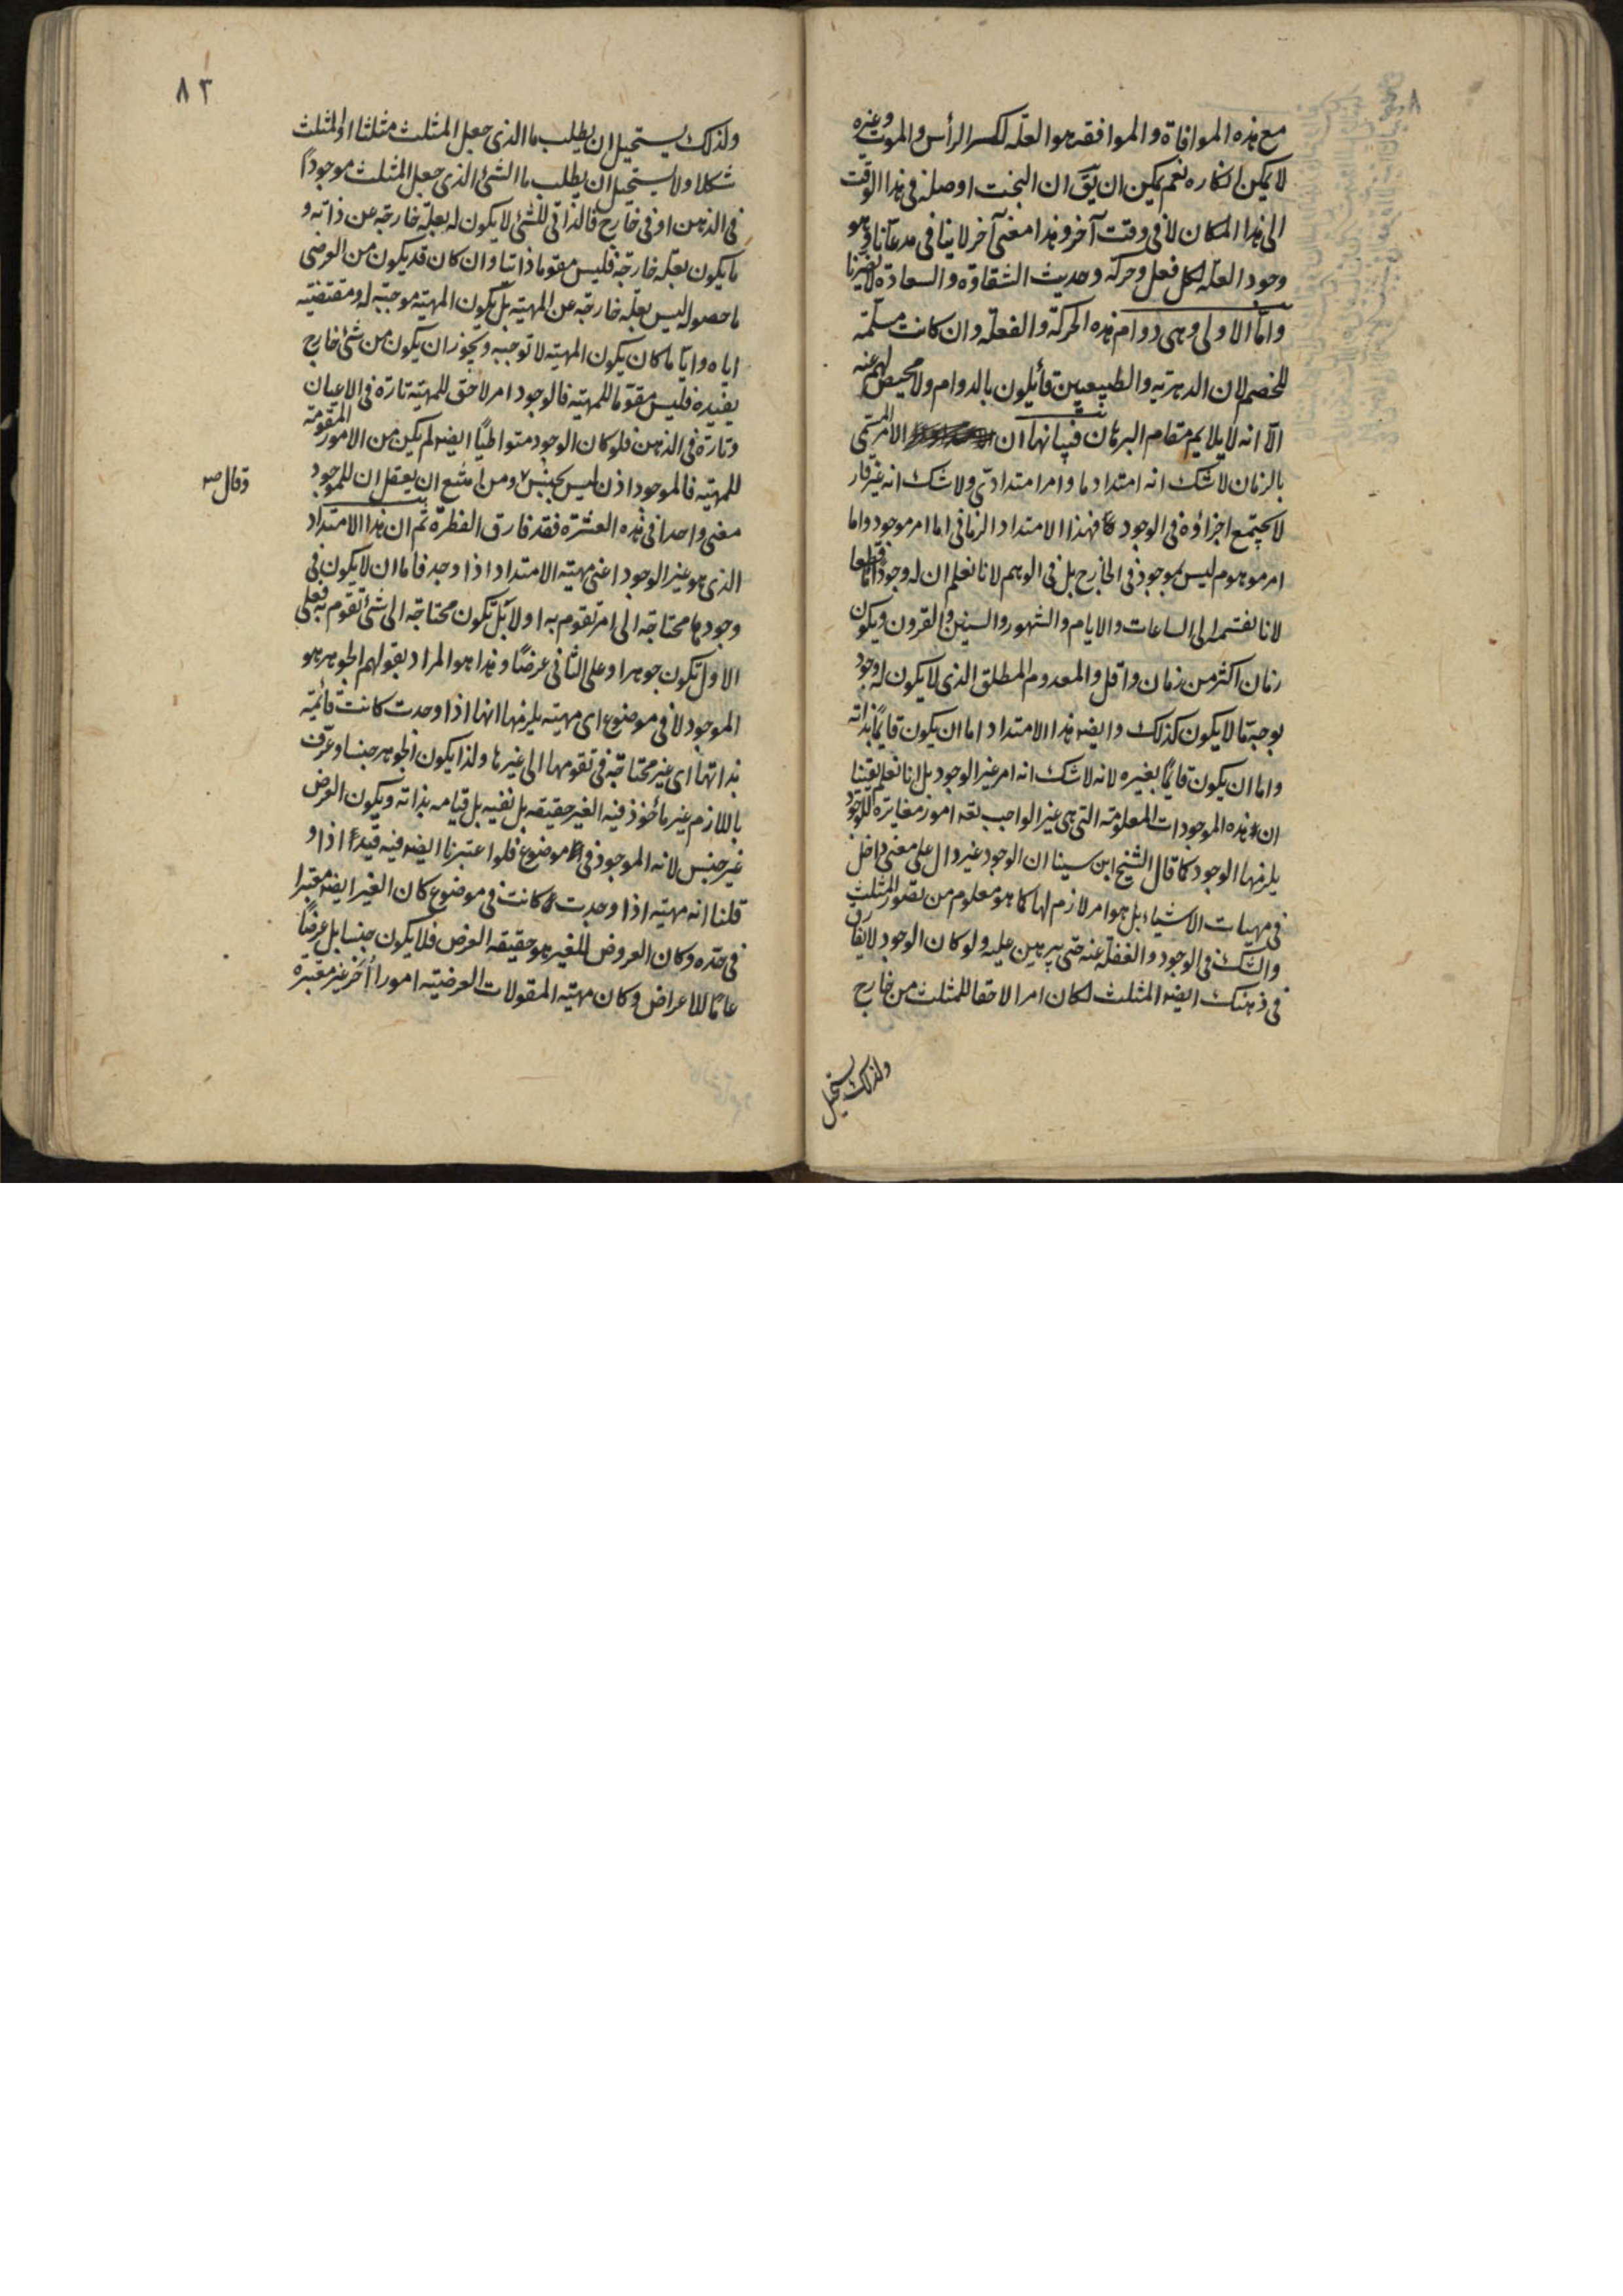 مع هذه الموافاة والموافقه هو العلّه لكسر الرأس والموت وغيره
لا يمكن انكاره نعم يمكن ان يقَ ان البخت اوصله فى هذا الوقت
الى هذا المكان لا فى وقت آخر وهذا معنى آخر لا ينافى مدعانا وهو
وجود العلّه لكل فعل وحركه وحديث الشقاوة والسعادة لا يضرنا
وامّا الاولى وهى دوام هذه الحركة والفعلة وان كانت مسلّمة
للخصم لان الدهريه والطبيعيين قائلون بالدوام ولا محيص لهم عنه
الّا انه لا يلايم مقام البرهان فبيانها ان الامر المسمى
بالزمان لا شك انه امتداد ما وامر امتدادىّ ولا شك انه غير قار
لا يجتمع اجزاؤه فى الوجود فهذا الامتداد الزمانى اما امر موجود واما
امر موهوم ليس بموجود فى الخارج بل فى الوهم لانا نعلم ان له وجودًا ما قطعا
لانا نقسمه الى الساعات والايام والشهور والسنين والقرون ويكون
زمان اكثر من زمان واقل والمعدوم المطلق الذى لا يكون له وجود
بوجه ما لا يكون كذلك وايضه هذا الامتداد اما ان يكون قايمًا بذاته
واما ان يكون قايمًا بغيره لانه لا شك انه امر غير الوجود بل انا نعلم يقينا
ان هذه الموجودات المعلومة التى هى غير الواجب تعه امور مغايرة للوجود
يلزمها الوجود كما قال الشيخ ابن سينا ان الوجود غير دال على معنى داخل
فى مهيات الاشياء بل هو امر لازم لها كما هو معلوم من تصور المثلث
والشك فى الوجود والغفلة عنه حتى يبرهن عليه ولو كان الوجود لا يفارق
فى ذهنك ايضه المثلث لكان امرا لاحقا للمثلث من خارج
ولذلك يستحيل
٨٣
ولذلك يستحيل ان يطلب ما الذى جعل المثلث مثلثا او المثلث
شكلا ولا يستحيل ان يطلب ما الشئ الذى جعل المثلث موجودًا
فى الذهن او فى خارج فالذاتى للشئ لا يكون له بعلّة خارجة عن ذاته و
ما يكون بعلّه خارجة فليس مقوما ذاتيا وان كان قد يكون من العرضى
ما حصوله ليس بعلّه خارجة عن المهيّة بل يكون المهيّة موجبة له ومقتضية
اياه وايّا ما كان يكون المهيّة لا توجبه ويجوز ان يكون من شئ خارج
يفيده فليس مقوّما للمهيّه فالوجود امر لاحق للمهيّه تارة فى الاعيان
وتارة فى الذهن فلو كان الوجود متواطيًا ايضه لم يكن من الامور المقومة
للمهيّه فالموجود اذن ليس بجنس ومن امتنع ان يعقل ان للموجود
وقال صه
معنى واحدا فى هذه العشرة فقد فارق الفطرة ثم ان هذا الامتداد
الذى هو غير الوجود اعنى مهيّه الامتداد اذا وجد فاما ان لا يكون فى
وجودها محتاجة الى امر تقوم به اولا بل تكون محتاجة الى شئ تقوم به فعلى
الاول تكون جوهرا وعلى الثانى عرضًا وهذا هو المراد بقولهم الجوهر هو
الموجود لا فى موضوع اى مهيّه يلزمها انها اذا وجدت كانت قائمة
بذاتها اى غير محتاجة فى تقومها الى غيرها ولذا يكون الجوهر جنسا وعرّف
باللازم غير مأخوذ فيه الغير حقيقه بل نفيه بل قيامه بذاته ويكون العرض
غير جنس لانه الموجود فى موضوع فلو اعتبرنا ايضه فيه قيد اذا و
قلنا انه مهيّه اذا وجدت كانت فى موضوع كان الغير ايضه معتبرا
فى حدّه وكان العروض للغير هو حقيقه العرض فلا يكون جنسا بل عرضًا
عامًا للاعراض وكان مهيّه المقولات العرضيّه امورا أُخر غير معتبرة